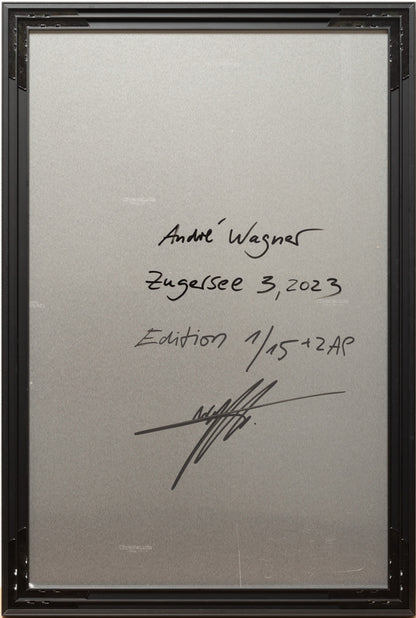 André Wagner
Zugersee 3, 2023
Edition 1/15 + 2AP